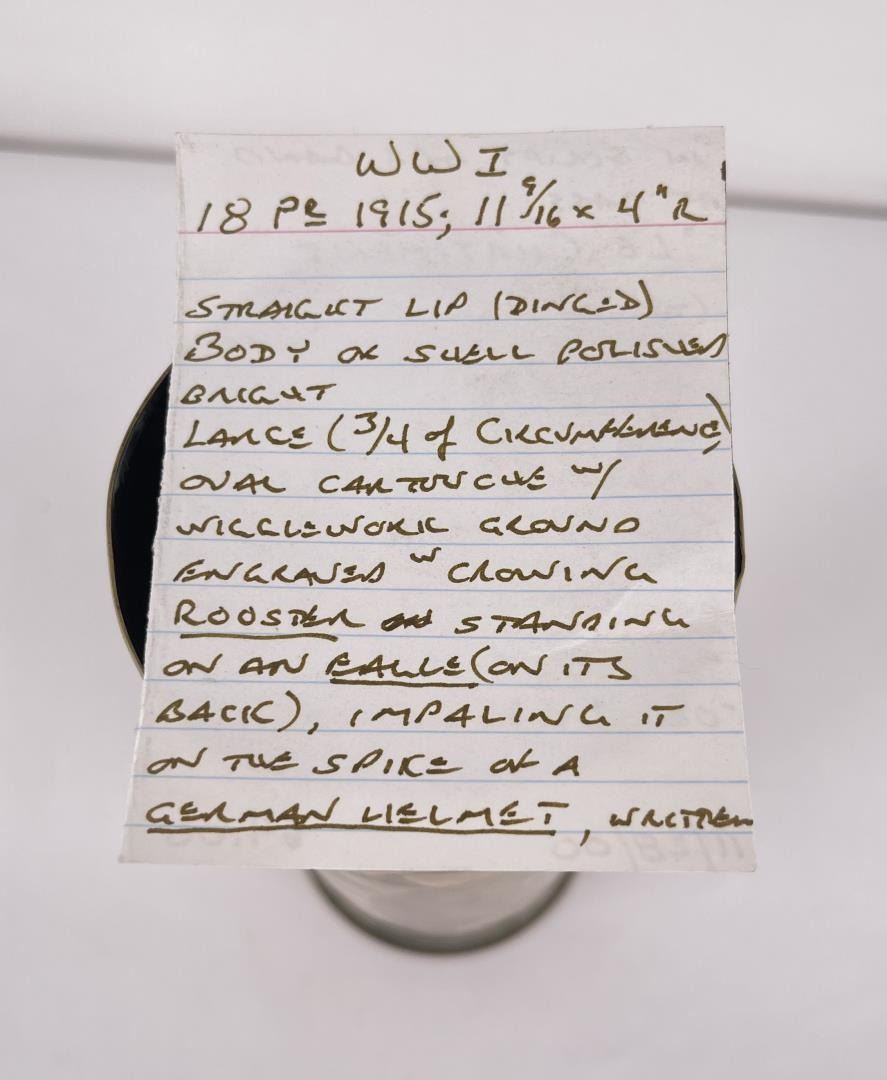 WWI
18 PR 1915; 11 9/16 x 4" R
STRAIGHT LIP (DINGED)
BODY OF SHELL POLISHED
BRIGHT
LARGE (3/4 of CIRCUMFERENCE)
OVAL CARTOUCHE w/
WIGGLEWORK GROUND
ENGRAVED w CROWING
ROOSTER STANDING
ON AN EAGLE (ON ITS
BACK), IMPALING IT
ON THE SPIKE OF A
GERMAN HELMET, WRITTEN